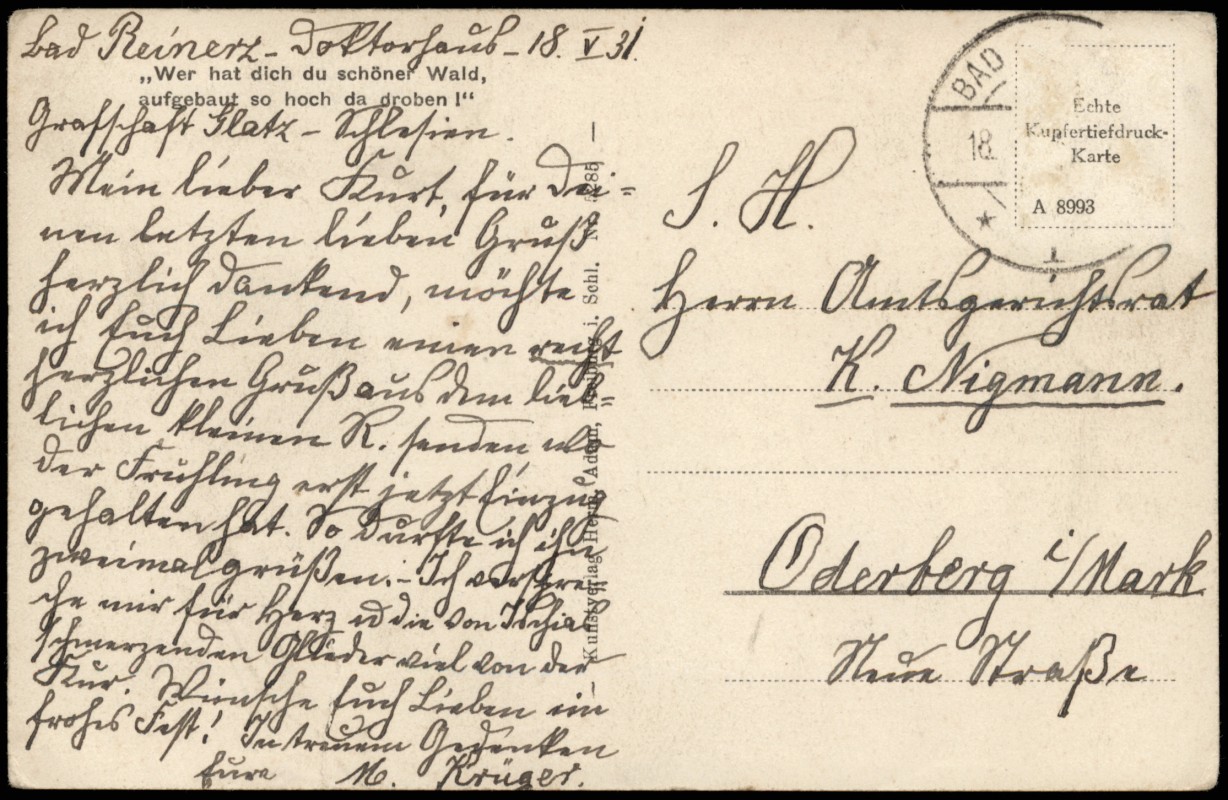 Bad Reinerz - Doktorhaus - 18. V 31.
„Wer hat dich du schöner Wald,
aufgebaut so hoch da droben!“
Grafschaft Glatz - Schlesien.
Mein lieber Kurt, für Dei=
nen letzten lieben Gruß
herzlich dankend, möchte
ich Euch Lieben einen recht
herzlichen Gruß aus dem lieb=
lichen kleinen R. senden wo
der Frühling erst jetzt Einzug
gehalten hat. So durfte ich ihn
zweimal grüßen. - Ich verspre=
che mir für Herz u die von Ischias
schmerzenden Glieder viel von der
Kur. Wünsche Euch Lieben ein
frohes Fest! In treuem Gedenken
Eure M. Krüger.
Kunstverlag Herm. Adam, i. Schl.
BAD
18.
Echte
Kupfertiefdruck-
Karte
A 8993
S. H.
Herrn Amtsgerichtsrat
K. Nigmann.
Oderberg i/Mark
Neue Straße